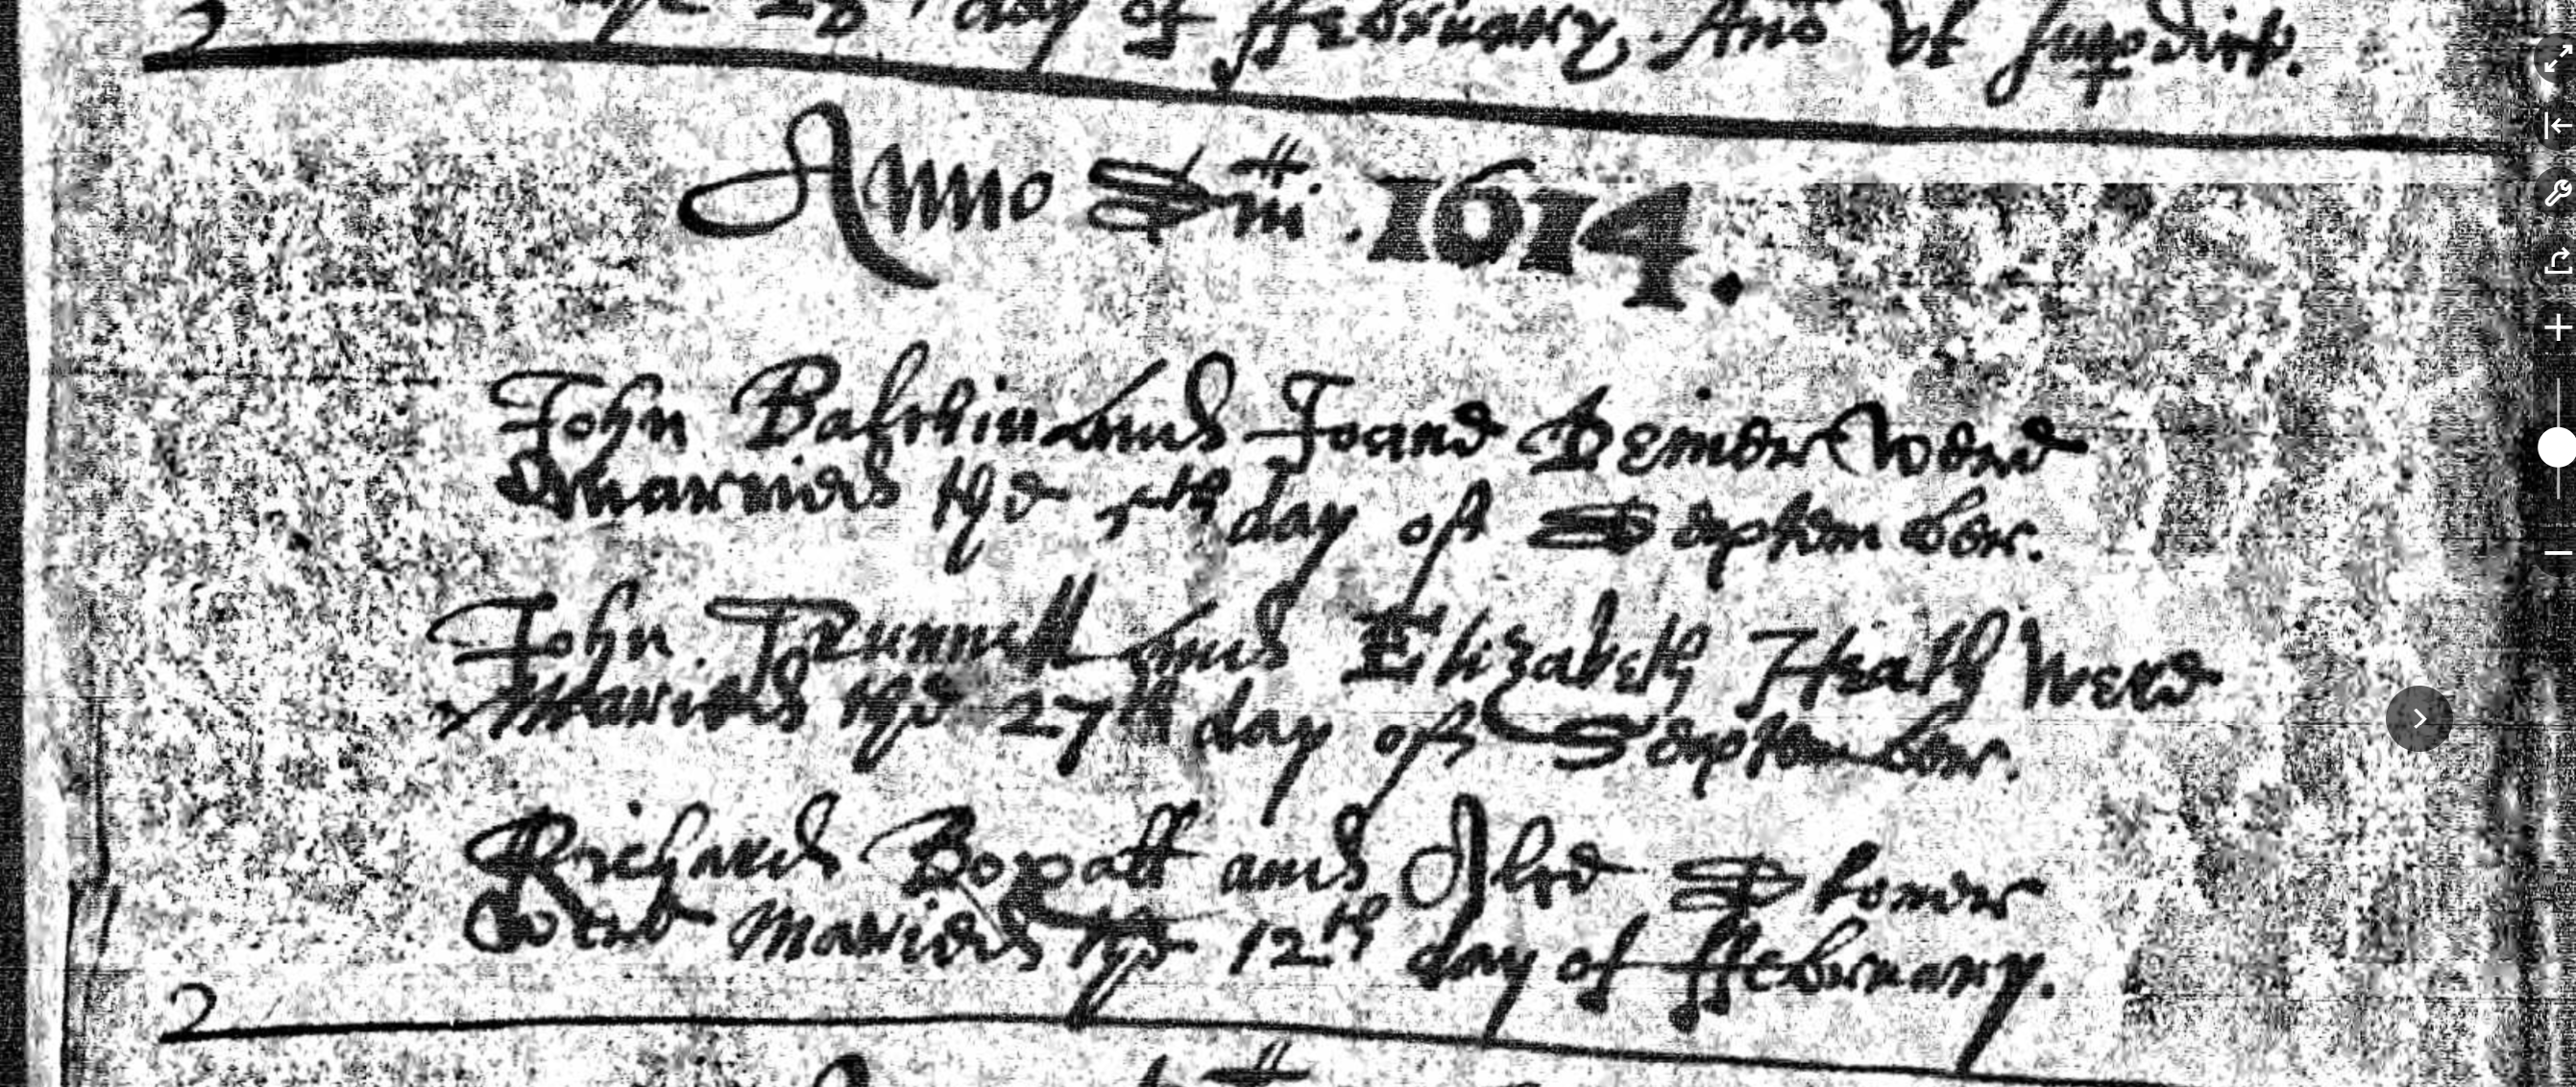 28 day of ffebruary. Ano vt supdict.
Anno Dm̄i. 1614.
John and Joane were
Married the 5th day of September.
John and Elizabeth Heath were
Maried the 27th day of September.
Richard and Alce
were Maried the 12th day of ffebruary.
2